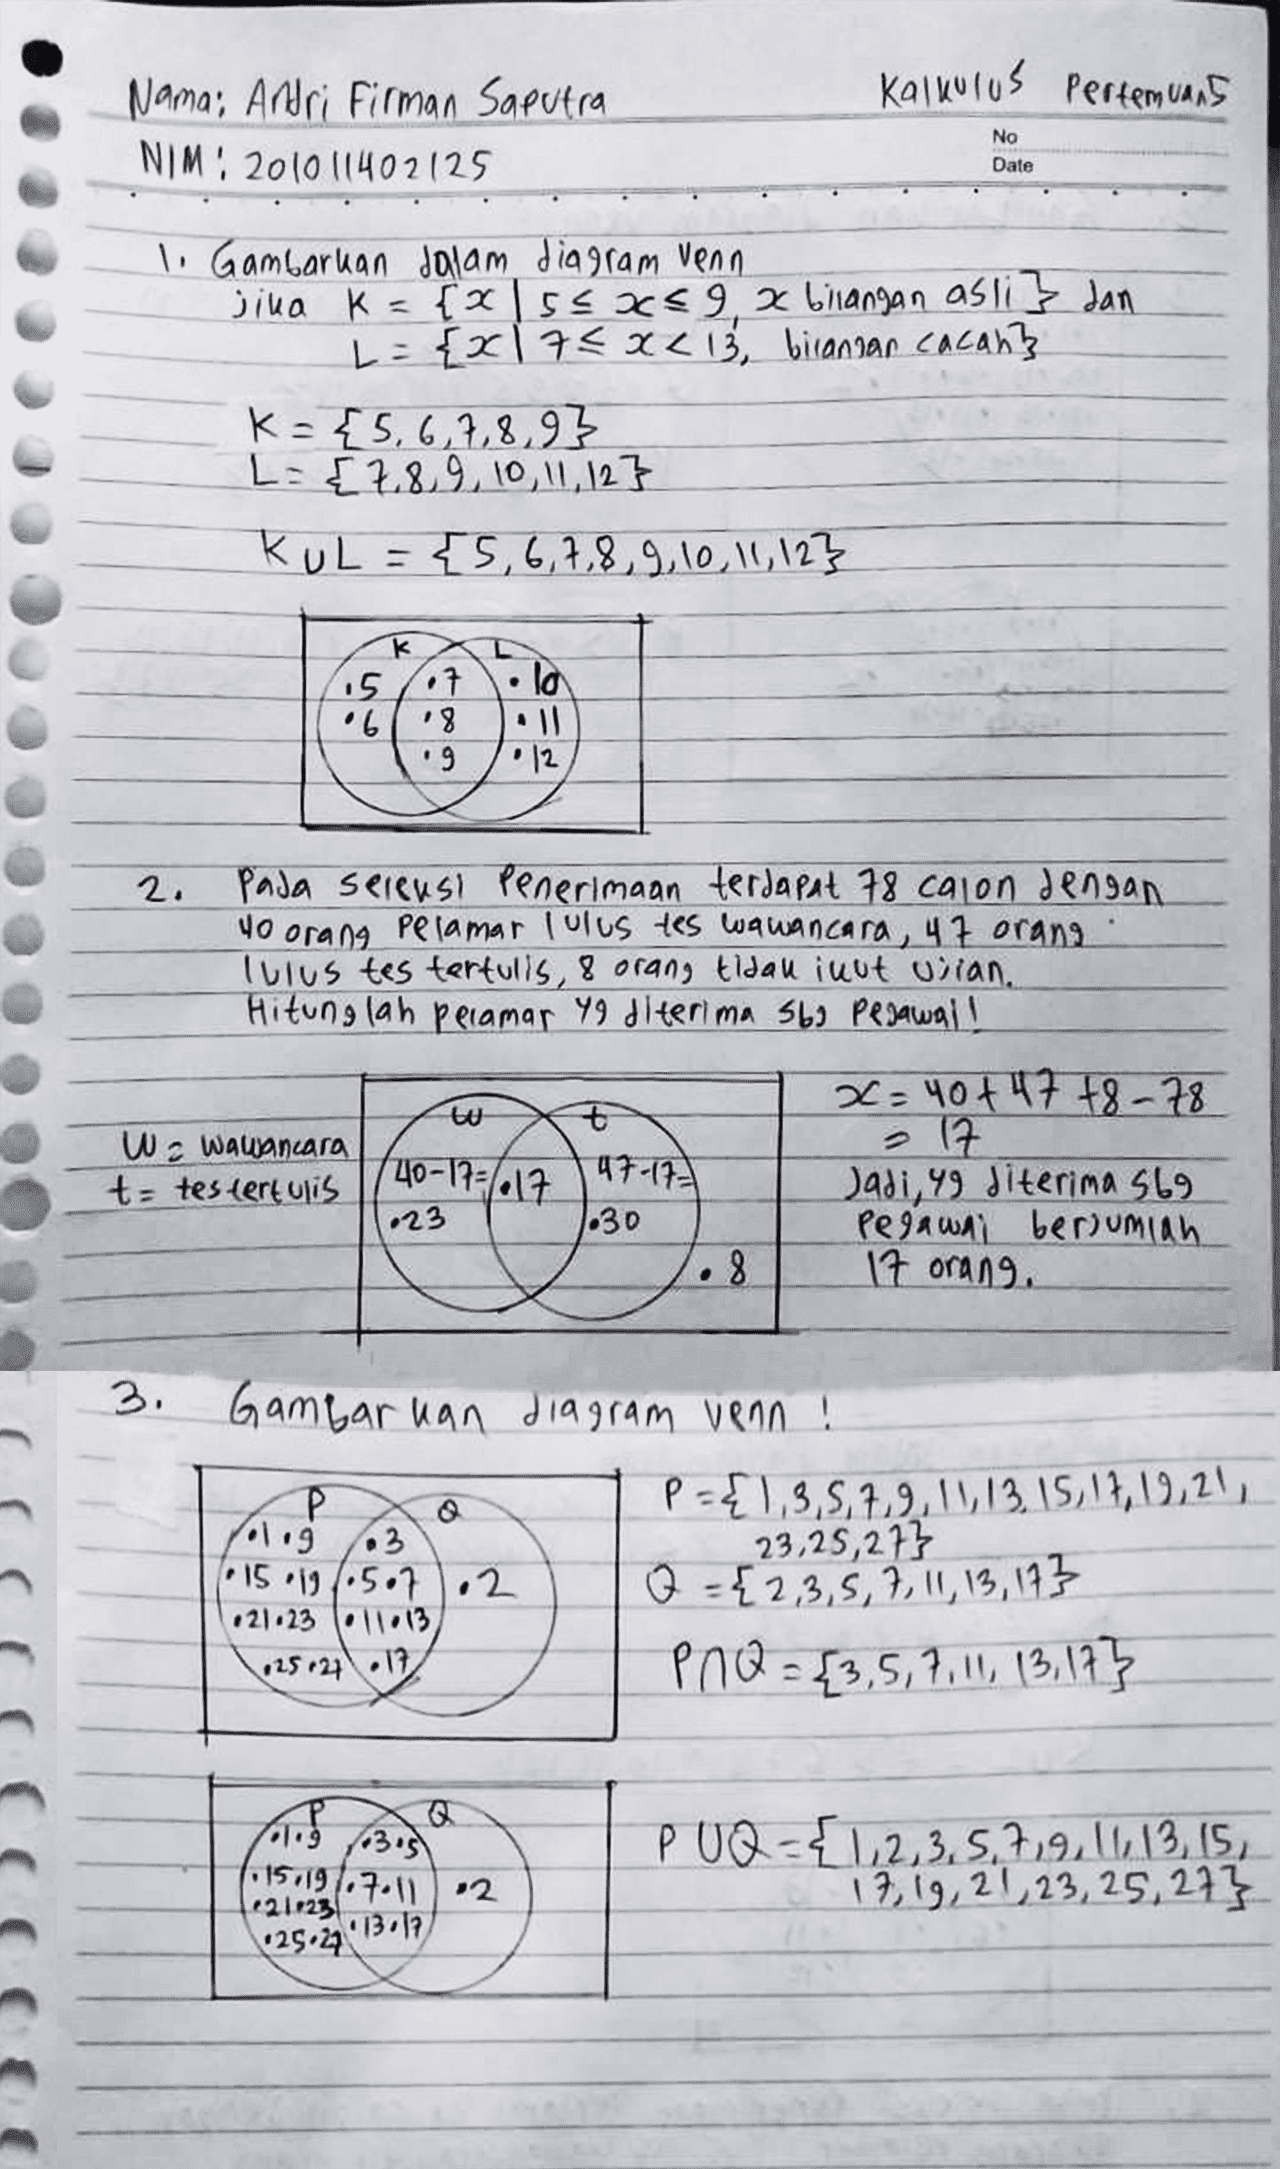 Nama: Andri Firman Saputra
Kalkulus Pertemuan 5
NIM: 201011402125
No
Date
1. Gambarkan dalam diagram venn
jika K = {x | 5 ≤ x ≤ 9, x bilangan asli} dan
L = {x | 7 ≤ x < 13, bilangan cacah}
K = {5, 6, 7, 8, 9}
L = {7, 8, 9, 10, 11, 12}
K ∪ L = {5, 6, 7, 8, 9, 10, 11, 12}
K L
.5 .7 .10
.6 .8 .11
.9 .12
2. Pada seleksi Penerimaan terdapat 78 calon dengan
40 orang pelamar lulus tes wawancara, 47 orang
lulus tes tertulis, 8 orang tidak ikut ujian.
Hitunglah pelamar yg diterima sbg Pegawai!
w = wawancara
t = tes tertulis
w t
40-17= .17 47-17=
.23 .30
.8
x = 40 + 47 + 8 - 78
= 17
Jadi, yg diterima sbg
Pegawai berjumlah
17 orang.
3. Gambarkan diagram venn !
P Q
.1 .9 .3
.15 .19 .5 .7 .2
.21 .23 .11 .13
.25 .27 .17
P = {1, 3, 5, 7, 9, 11, 13, 15, 17, 19, 21,
23, 25, 27}
Q = {2, 3, 5, 7, 11, 13, 17}
P ∩ Q = {3, 5, 7, 11, 13, 17}
P Q
.1 .9 .3 .5
.15 .19 .7 .11 .2
.21 .23 .13 .17
.25 .27
P ∪ Q = {1, 2, 3, 5, 7, 9, 11, 13, 15,
17, 19, 21, 23, 25, 27}